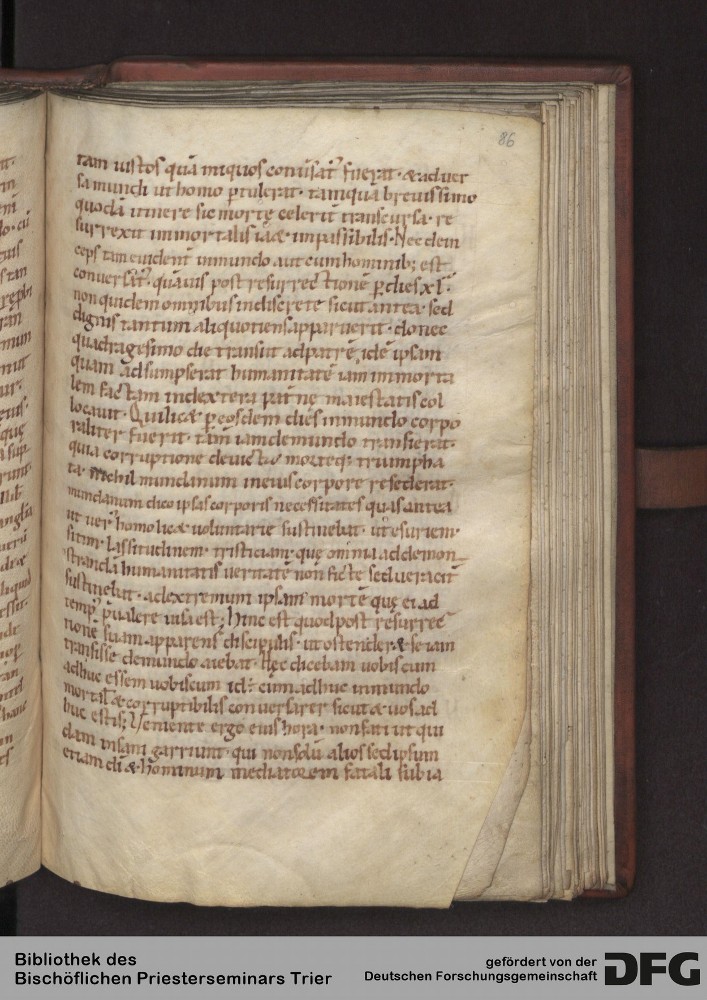 86
tam iustos quā iniquos conuˢatˀ fuerat · & aduer
sa mundi ut homo ptulerat · tamquā breuissimo
quodā itinere sic mortę celeritˀ transcursa · re
surrexit immortalis iā & impassibilis · Nec dein
ceps tam euidentˀ inmundo aut cum hominib; est
conuersatˀ · quāuis post resurrectionē p dies xl ·
non quidem omnibus indiscrete sicut antea · sed
dignis tantum aliquotiens apparuerit · donec
quadragesimo die transiit ad patrē · idē ipsam
quam adsumpserat humanitatē iam inmorta
lem factam indextera patnę maiestatis col
locauit · Qui licet p eosdem dies inmundo corpo
raliter fuerit · tam̄ iam demundo transierat ·
quia corruptione deuicta morteq; triumpha
ta · nichil mundanum in eius corpore resederat ·
mundanum dico ipsas corporis necessitates quas antea
ut uerˀ homo licet uoluntarie sustinebat · ut esuriem ·
sitim · lassitudinem · tristiciam · quę omnia ad demon
stranda humanitatis ueritatē non ficte sed ueracitˀ
sustinebat · ad extremum ipsam mortē quę ei ad
tempˀ pualere uisa est; Hinc est quod post resurrec
tionē suam apparens discipulis · ut ostenderet se iam
transisse demundo aiebat · Hęc dicebam uobis cum
adhuc essem uobiscum · id ÷ cum adhuc inmundo
mortal & corruptibilis conuersarer sicut & uos ad
huc estis; Ueniente ergo eius hora · non fati ut qui
dam insani garriunt · qui non solū alios sed ipsum
etiam di & hominum mediatorem fatali subia
Bibliothek des
Bischöflichen Priesterseminars Trier
gefördert von der
Deutschen Forschungsgemeinschaft
DFG